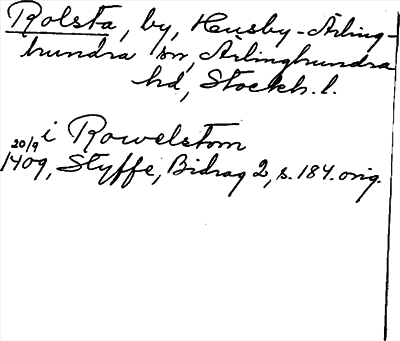 Rolsta, by, Husby-Ärling-
hundra sn, Ärlinghundra
hd, Stockh. l.
i Rowelstom
20/9 1409, Styffe, Bidrag 2, s. 184. orig.